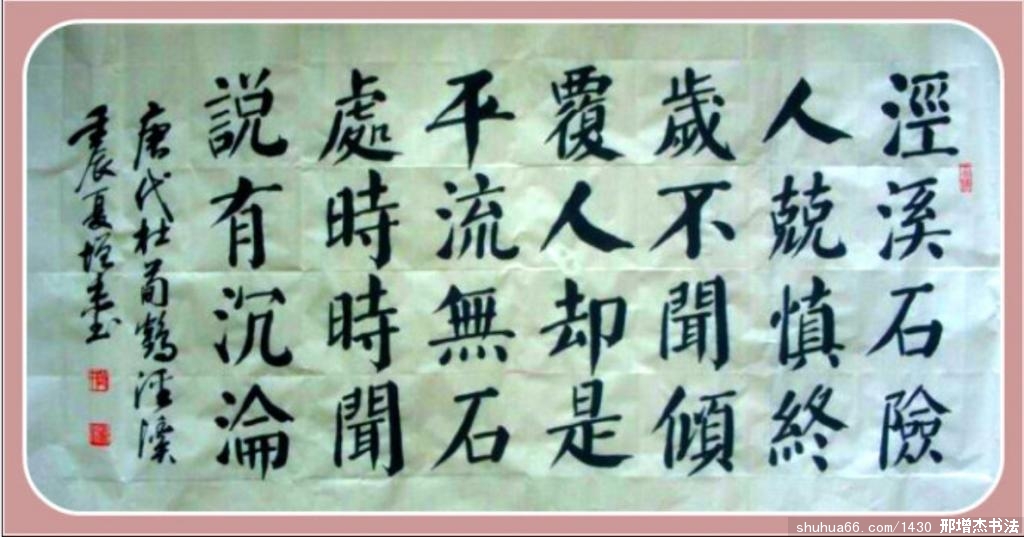 涇溪石險
人兢慎終
歲不聞傾
覆人却是
平流無石
處時時聞
説有沉淪
唐代杜荀鶴涇溪
壬辰夏增杰書
shuhua66.com/1430 邢增杰书法